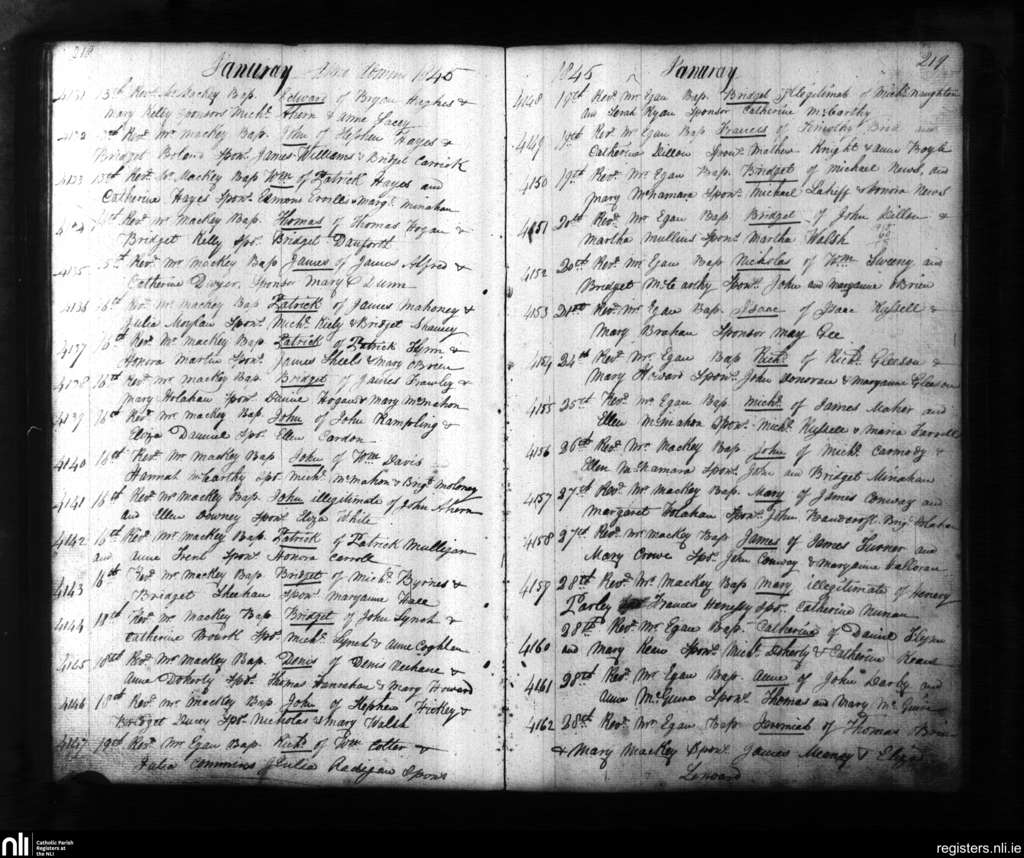 218
January Anno Domini 1845
4131 13th Revd. Mr Mackey Bap. Edward of Bryan Hughes &
Mary Kelly Sponsors Michl. Ahern & Anne Lacey
4132 Revd. Mr Mackey Bap. John of Stephen Hayes &
Bridget Boland Spons. James Williams & Bridget Carrick
4133 13th Revd. Mr Mackey Bap Wm of Patrick Hayes and
Catherine Hayes Spons. & Margt. Minahan
Revd. Mr Mackey Bap. Thomas of Thomas Hogan &
Bridget Kelly Sps. Bridget Danforth
4135 15th Revd. Mr Mackey Bap James of James Alfred &
Catherine Dwyer. Sponsor Mary Dunn
4136 16th Revd. Mr Mackey Bap. Patrick of James Mahoney &
Julia Moylan Spons. Michl. Kiely & Bridget
4137 16th Revd. Mr Mackey Bap. Patrick of Patrick &
Honora Martin Spons. James Sheels & Mary OBrien
4138 16th Revd. Mr Mackey Bap. Bridget of James Frawley &
Mary Holahan Spons. Hogan & Mary McMahon
4139 16th Revd. Mr Mackey Bap. John of John Rampling &
Eliza Sps. Ellen Cardon
4140 16th Revd. Mr Mackey Bap John of Wm Davis
Hannah McCarthy Sps. Michl. McMahon & Brigt. Moloney
4141 16th Revd. Mr Mackey Bap. John illegitimate of John Ahern
and Ellen Downey Spons. Eliza White
4142 16th Revd. Mr Mackey Bap. Patrick of Patrick Mulligan
and Anne Trent Spons. Honora Carroll
4143 16th Revd. Mr Mackey Bap Bridget of Michl. Byrnes &
Bridget Sheehan Spons. Maryanne
4144 18th Revd. Mr Mackey Bap Bridget of John Lynch &
Catherine Bourk Sps. Michl. Lynch & Anne Coghlan
4145 18th Revd. Mr Mackey Bap. Denis of Denis &
Anne Doherty Sps. Thomas Hanrahan & Mary Howard
4146 18th Revd. Mr Mackey Bap John of Stephen Hickey &
Bridget Ducey Sps. Nicholas & Mary Walsh
4147 19th Revd. Mr Egan Bap. Richd. of Wm Cotter &
Julia Commins & Julia Radigan Spons
219
1845 January
4148 19th Revd. Mr Egan Bap. Bridget Illegitimate of Michl. Naughton
and Sarah Ryan Sponsor Catherine McCarthy
4149 19th Revd. Mr Egan Bap Frances of Timothy and
Catherine Dillon Spons. Mathew Knight & Anne Boyle
4150 19th Revd. Mr Egan Bap. Bridget of Michael News, and
Mary McNamara Spons. Michael Laheff & Honora News
4151 20th Revd. Mr Egan Bap Bridget of John Dillon &
Martha Mullins Spons. Martha Walsh
4152 20th Revd. Mr Egan Bap Nicholas of Wm Sweeny and
Bridget McCarthy Spons. John and Maryanne OBrien
4153 21st Revd. Mr Egan Bap. Isaac of Isaac Russell &
Mary Brahan Sponsor May Gee
4154 24th Revd. Mr Egan Bap Richd. of Richd. Gleeson &
Mary Howard Spons. John Donovan & Maryanne Gleeson
4155 25th Revd. Mr Egan Bap. Michl. of James Maher and
Ellen McMahon Spons. Michl. Russell & Maria Farrell
4156 26th Revd. Mr Mackey Bap John of Michl. Carmody &
Ellen McNamara Spons. John and Bridget Minahan
4157 27th Revd. Mr Mackey Bap. Mary of James Conway and
Margaret Holahan Spons. John Brigt. Holahan
4158 27th Revd. Mr Mackey Bap James of James Turner and
Mary Crowe Sps. John Conway & Maryanne Halloran
4159 28th Revd. Mr Mackey Bap Mary illegitimate of Henery
Parley Frances Henessy Sps. Catherine Nunan
4160 28th Revd. Mr Egan Bap. Catherine of Daniel Flynn
and Mary Keane Spons. Michl. Doherty & Catherine Keane
4161 28th Revd. Mr Egan Bap. Anne of John Darby and
Anne McGuine Spons. Thomas and Mary McGuine
4162 28th Revd. Mr Egan Bap Jeremiah of Thomas Brien
& Mary Mackey Spons. James Meaney & Eliza
Lenoard
nli
Catholic Parish
Registers at
the NLI
registers.nli.ie